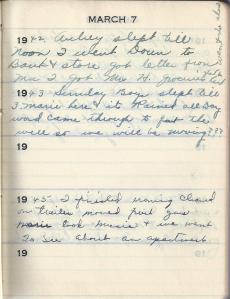 MARCH 7
1942 Aubrey slept till
noon I went Down to
Bank & store got letter from
Ma I got Mrs H. groceries
1943 Sunday Boys slept till
3 Marie here & it Rained all Day
word came through to put the
well so we will be moving???
19
1945 I finished ironing closed
on trailer moved
Marie took & we went
To see about an apartment
19